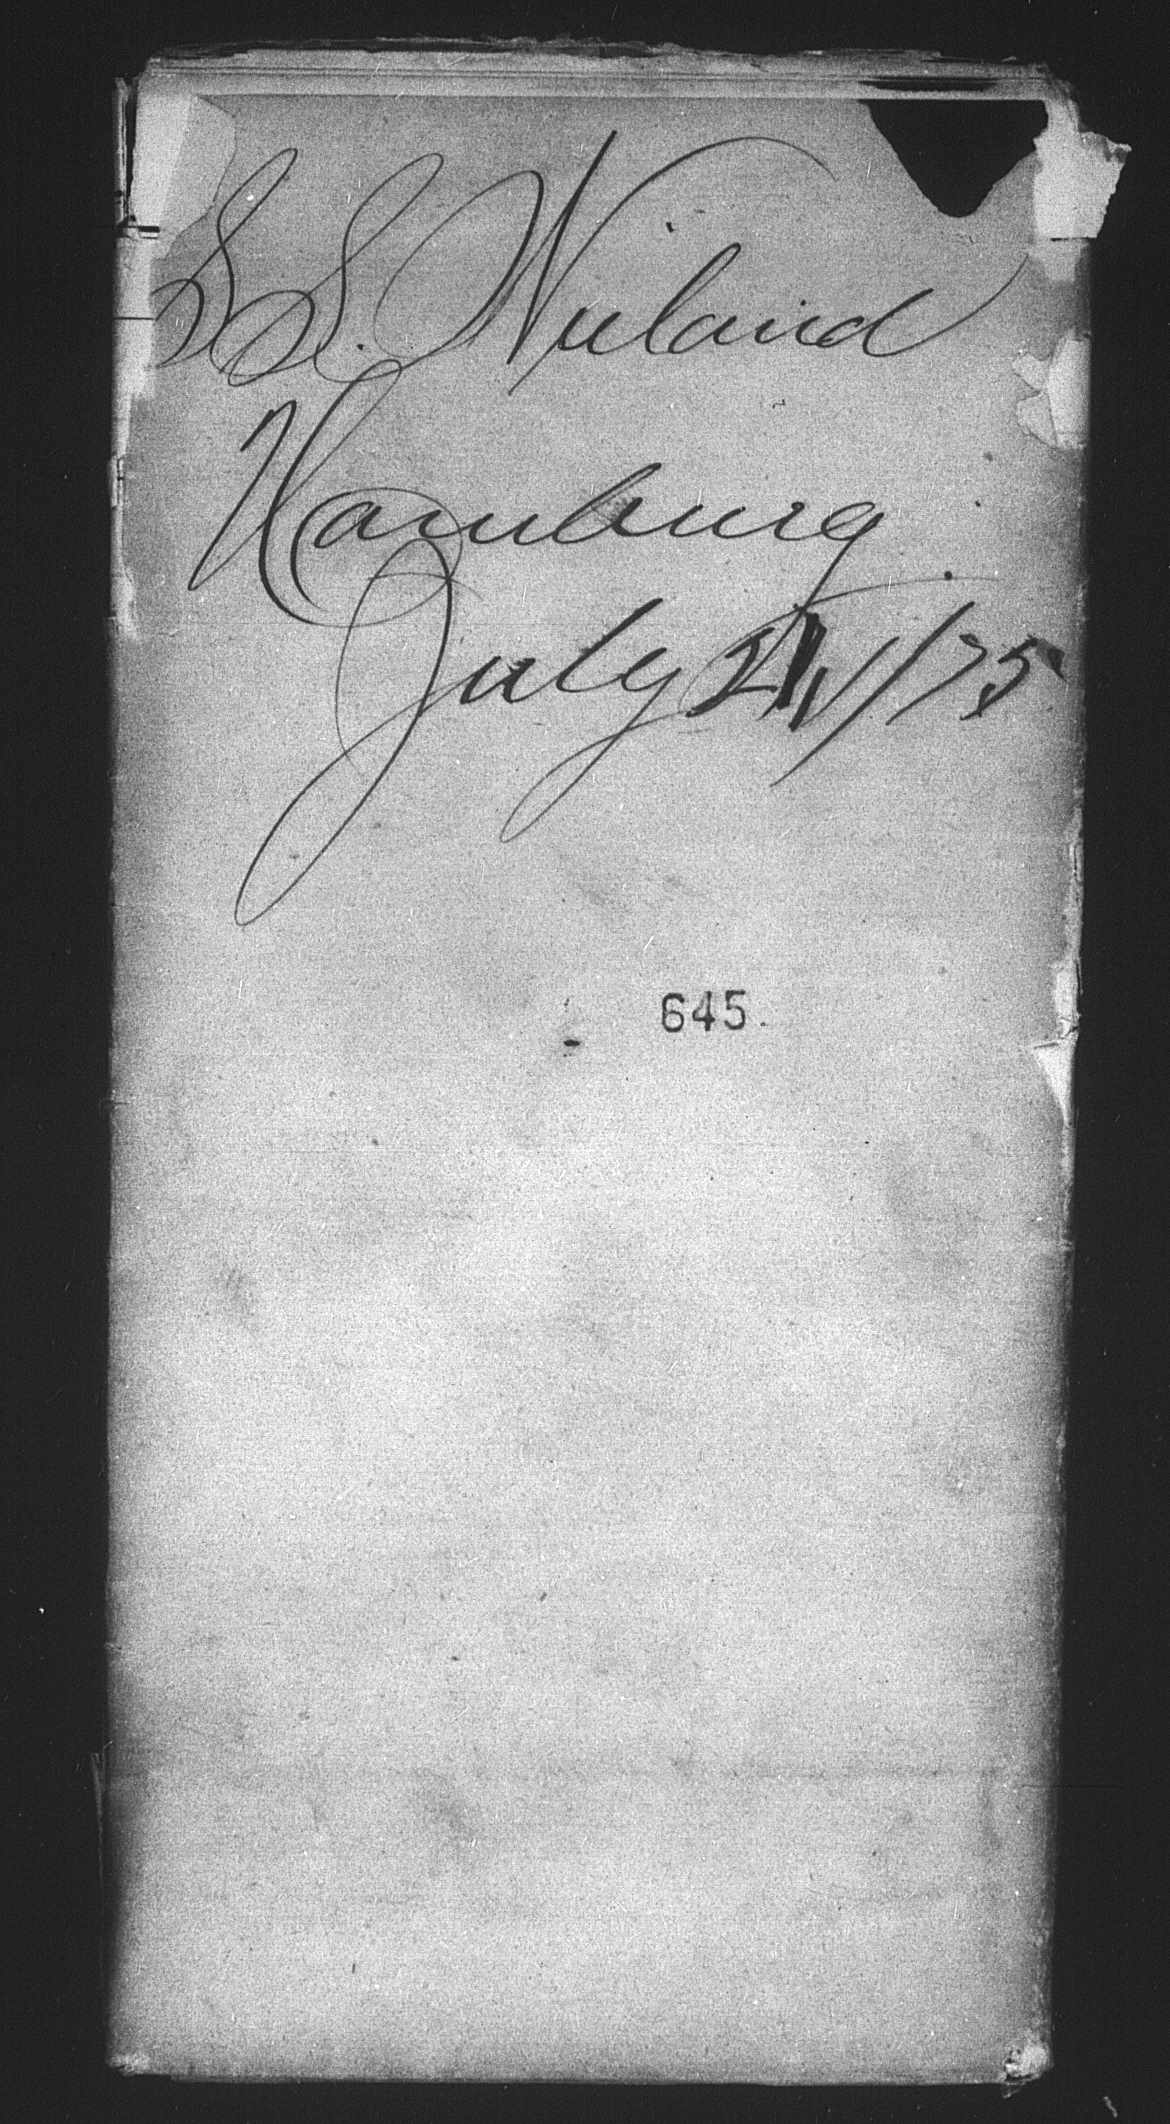 SS. Wieland
Hamburg
July 21/75
645.